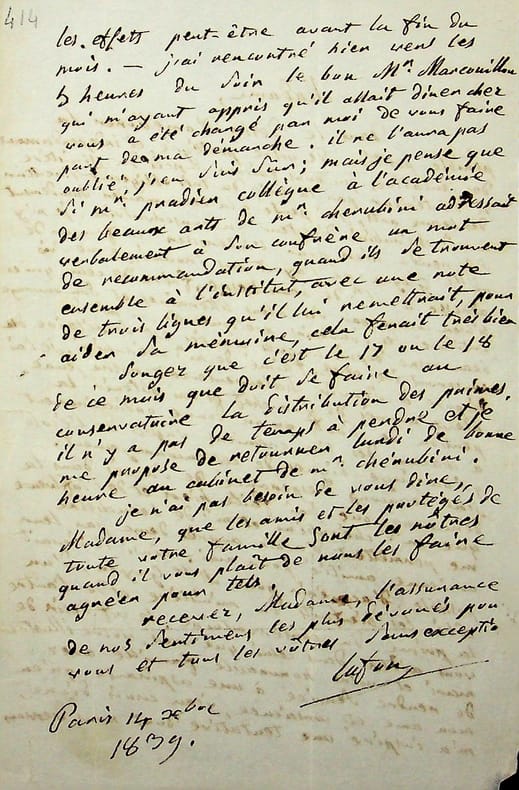 414
les effets peut-être avant la fin du
mois. — j'ai rencontré hier vers les
5 heures du soir le bon Mr. Marcouillon
qui m'ayant appris qu'il allait diner chez
vous a été chargé par moi de vous faire
part de ma démarche. il ne l'aura pas
oublié, j'en suis sur; mais je pense que
si mr. pradier collègue à l'académie
des beaux arts de mr. cherubini adressait
verbalement à son confrère un mot
de recommandation, quand ils se trouvent
ensemble à l'institut, avec une note
de trois lignes qu'il lui remettrait, pour
aider sa mémoire, cela ferait très bien
Songez que c'est le 17 ou le 18
de ce mois que doit se faire au
conservatoire la distribution des primes.
il n'y a pas de temps à perdre et je
me propose de retourner lundi de bonne
heure au cabinet de mr. chérubini.
je n'ai pas besoin de vous dire,
Madame, que les amis et les protégés de
toute votre famille sont les nôtres
quand il vous plaît de nous les faire
agréer pour tels.
recevez, Madame, l'assurance
de nos sentimens les plus dévoués pour
vous et tous les vôtres sans exceptio
Lafon
Paris 14 xbre
1839.